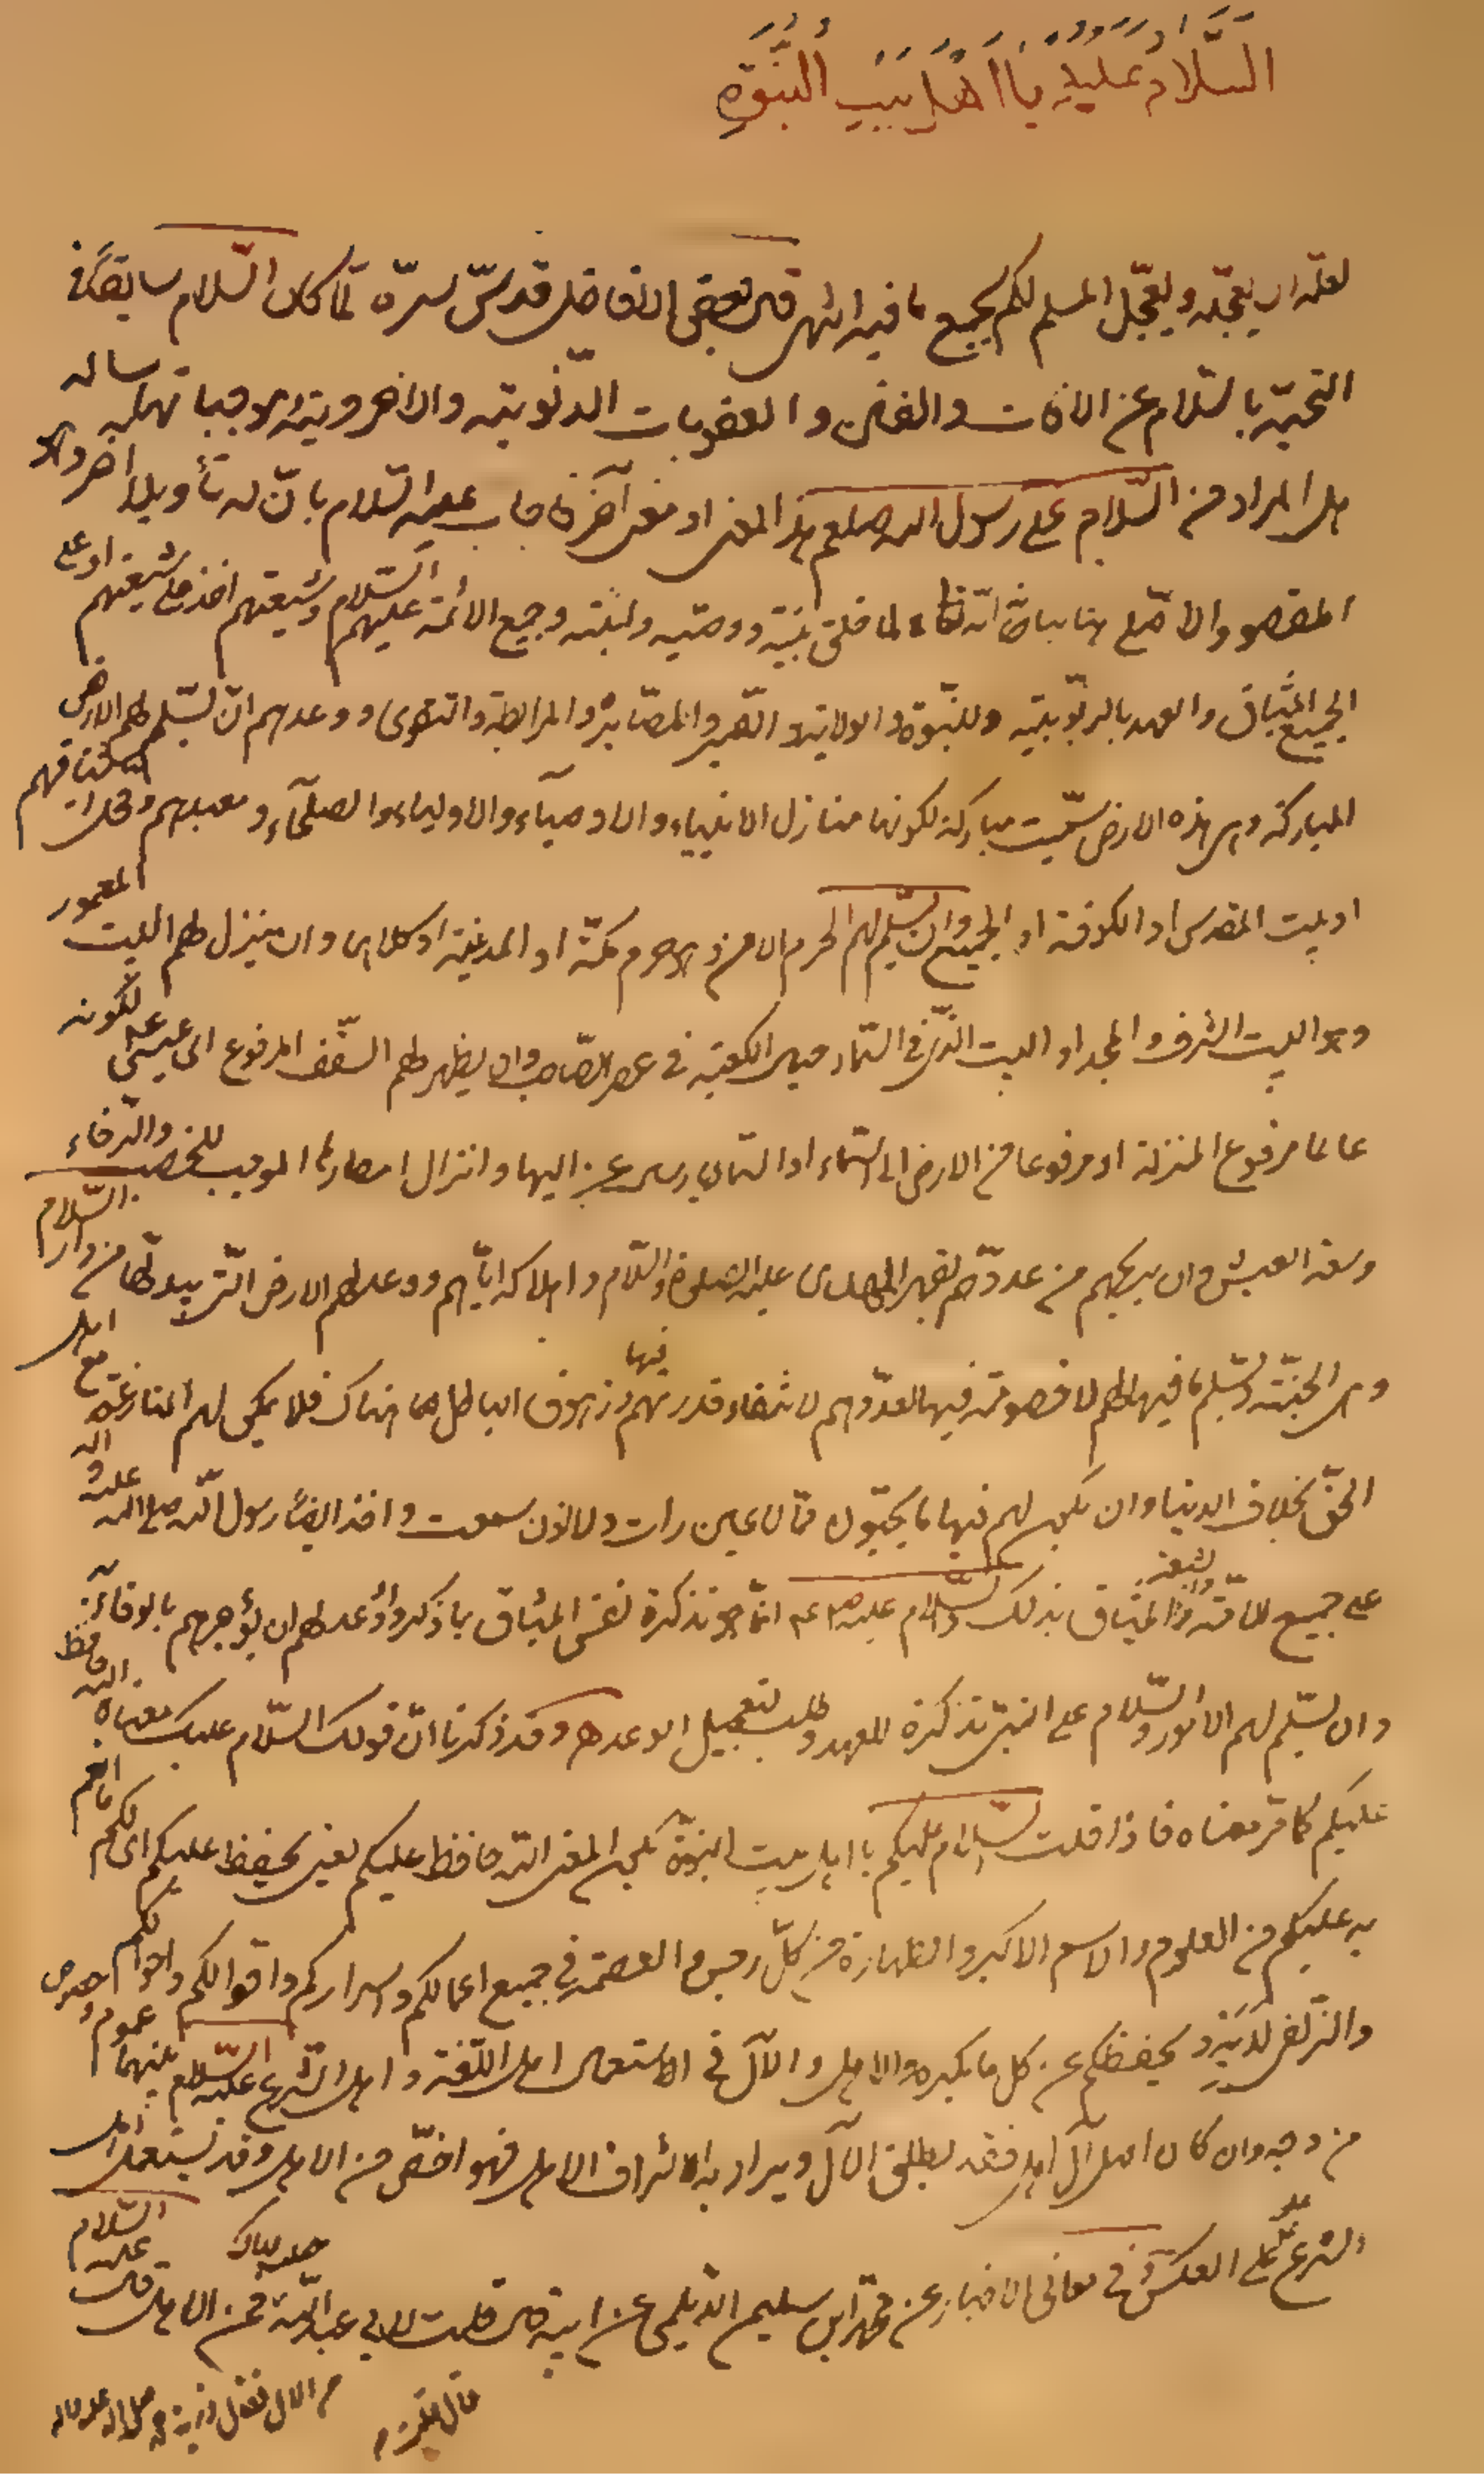 السَّلَامُ عَلَيْكُمْ يَا أَهْلَ بَيْتِ النُّبُوَّةِ
لعلّه ان يعجّله ويعجّل المسلم لكم بجميع ما فيه انتهى قال بعض الافاضل قدسّ سرّه لمّا كان السّلام سابقًا في
التحيّة بالسّلام عن الآفات والفتن والعقوبات الدّنيوية والاخروية
هل المراد من السّلام على رسول الله صلعم هذا المعنى او معنى آخر فاجاب عليه السّلام بانّ له تأويلا آخر وهو
المقصود والاصلى بيانه انّه تعالى لما خلق نبيّه ووصيّه وابنته وجميع الائمّة عليهم السّلام وشيعتهم اخذ على شيعتهم او على
الجميع الميثاق والعهد بالربوبيّة وللنبّوة والولاية والصّبر والمصابرة والمرابطة والتقوى ووعدهم ان يسلّم لهم الارض
المباركة وهى هذه الارض سمّيت مباركة لكونها منازل الانبياء والاوصياء والاولياء والصلحآء ومعبدهم
او بيت المقدس او الكوفة او الجميع وان يسلّم لهم الحرم الامن وهو حرم مكّة او المدينة او كلاهما وان ينزل لهم البيت المعمور
وهو البيت الشرف والمجد او البيت الذى فى السّماء حيال الكعبة فى عصر الصّاحب وان يظهر لهم السّقف المرفوع اى عيسى لكونه
عالما مرفوع المنزلة او مرفوعا من الارض الى السّماء او السّماء وانزال امطارها الموجب للخصب والرّخاء
وسعة العيش وان يريحهم من عدوّهم بقهر المهدى عليه الصلوة والسّلام واهلاكه ايّاهم ووعد لهم الارض التّى يبدلها من دار السّلام
وهى الجنّة ويسلّم ما فيها لهم لا خصومة فيها لعدوّهم لانتفاء قدرتهم فيها وزهوق الباطل هناك فلا يمكن لهم المنازعة مع اهل
الحقّ بخلاف الدنيا وان يكون لهم فيها ما يحبّون ممّا لا عين رات ولا اذن سمعت واخذ ايضًا رسول الله صلى الله عليه واله
على جميع الامّة والشيعة الميثاق بذلك والسّلام عليه انّما هو تذكرة نفس الميثاق بما ذكر ووعد لهم ان يؤجرهم بالوفاء
وان يسلّم لهم الامور والسّلام على النبىّ تذكرة للعهد وطلب لتعجيل الوعد وقد ذكرنا انّ قولك السّلام عليك معناه الله حافظ
عليكم كما مرّ معناه فاذا قلت السّلام عليكم يا اهل بيت النبوّة يكون المعنى الله حافظ عليكم يعنى يحفظ عليكم اى لكم ما انعم
به عليكم من العلوم والاسم الاكبر والطهارة من كلّ رجس والعصمة فى جميع اعمالكم واسراركم واقوالكم واحوالكم
والزّلفى لديه ويحفظكم عن كل ما يكره والاهل والآل فى الاستعمال اهل اللّغة واهل الشّرع عليه السّلام بينهما عموم وخصوص
من وجه وان كان اصل آل اهل فقد يطلق الآل ويراد به الاشراف الاهل فهو اخصّ من الاهل وقد يستعمل اهل
الشرع على العكس وفى معانى الاخبار عن محمّد بن سليمان الدّيلمى عن ابيه قال قلت لابى عبد الله عليه السّلام جعلت فداك فمن الاهل قال
من الآل فقال ذرية محمد صلى الله عليه واله